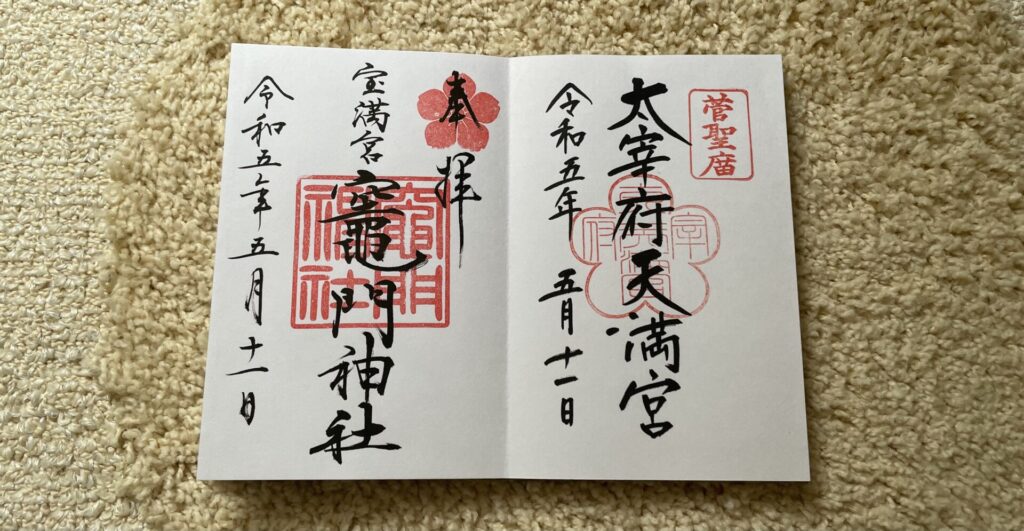 菅聖廟
太宰府天満宮
令和五年 五月十一日
奉拝
宝満宮竈門神社
竈門
神社
令和五年五月十一日